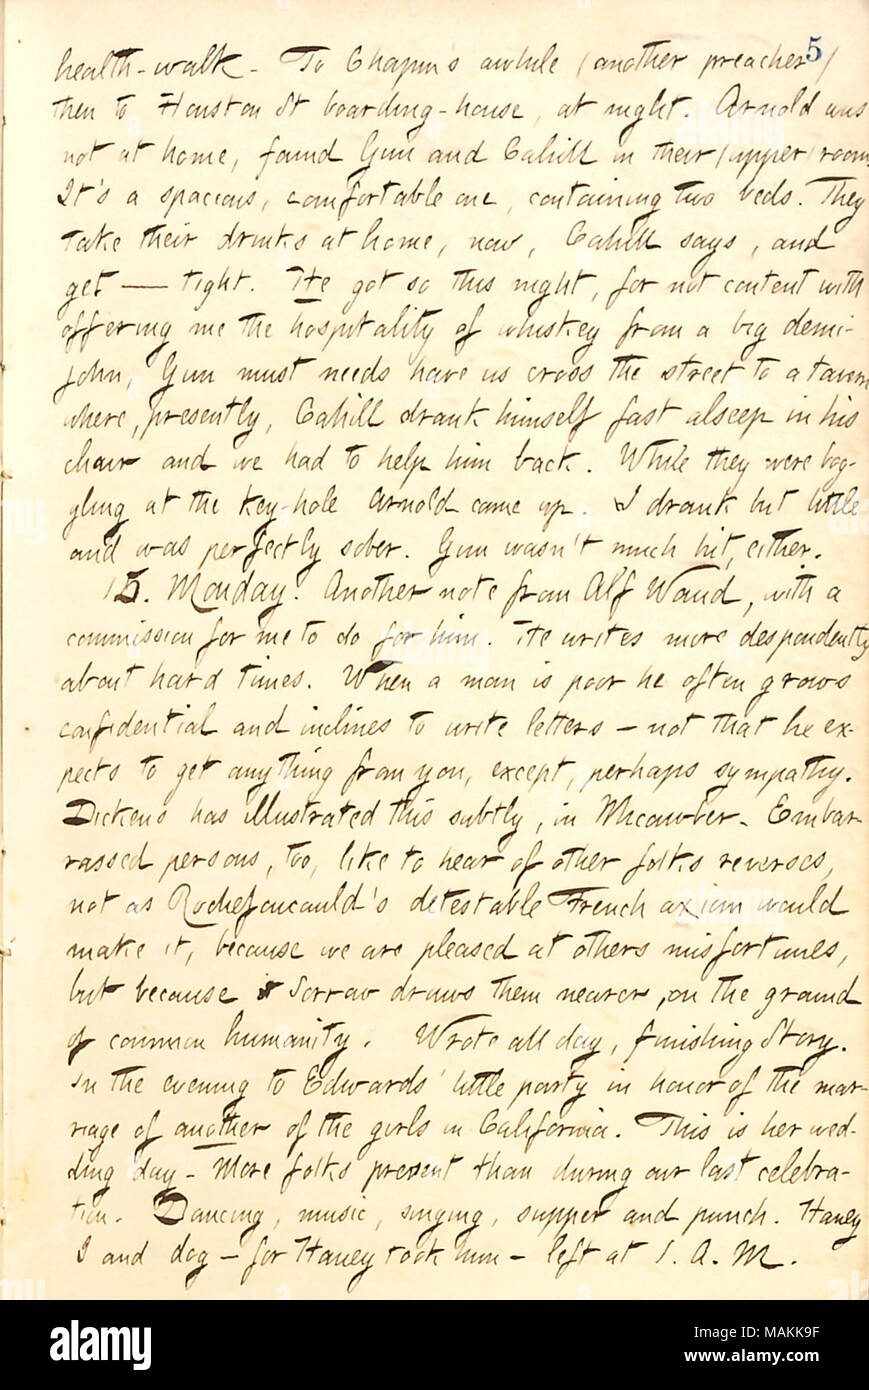 5
health-walk. To Chapin's awhile (another preacher)
then to Houston St boarding-house, at night. Arnold was
not at home, found Gun and Cahill in their (upper) room.
It's a spacious, comfortable one, containing two beds. They
take their drinks at home, now, Cahill says, and
get — tight. He got so this night, for not content with
offering me the hospitality of whiskey from a big demi-
john, Gun must needs have us cross the street to a tavern
where, presently, Cahill drank himself fast alseep in his
chair and we had to help him back. While they were bog-
gling at the key-hole Arnold came up. I drank but little
and was perfectly sober. Gun wasn't much hit, either.
15. Monday. Another note from Alf Waud, with a
commission for me to do for him. He writes more despondently
about hard times. When a man is poor he often grows
confidential and inclines to write letters — not that he ex-
pects to get anything from you, except, perhaps sympathy.
Dickens has illustrated this subtly, in Micawber. Embar-
rassed persons, too, like to hear of other folks reverses,
not as Rochefoucauld's detestable French axiom would
make it, because we are pleased at others misfortunes,
but because sorrow draws them nearer, on the ground
of common humanity. Wrote all day, finishing Story.
In the evening to Edwards' little party in honor of the mar-
riage of another of the girls in California. This is her wed-
ding day. More folks present than during our last celebra-
tion. Dancing, music, singing, supper and punch. Haney
I and dog — for Haney took him — left at 1. A. M.
alamy
Image ID: MAKK9F
www.alamy.com